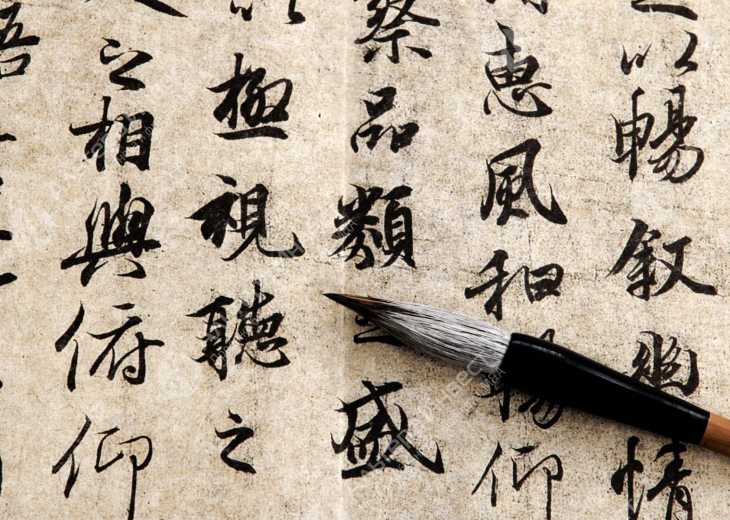 以暢叙幽情
惠風和暢仰
察品類之盛
以極視聽之
之相與俯仰